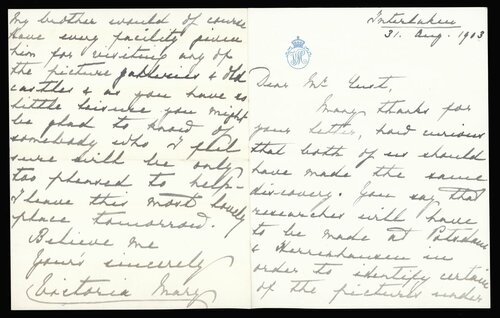 Interlaken
31. Aug. 1903
Dear Mr Cust,
Many thanks for
your letter, how curious
that both of us should
have made the same
discovery. You say that
researches will have
to be made at Potsdam
& Herrenhausen in
order to identify certain
of the pictures under
My brother would of course
have every facility given
him for visiting any of
the picture galleries & old
castles & as you have so
little leisure you might
be glad to know of
somebody who I feel
sure will be only
too pleased to help -
I leave this most lovely
place tomorrow.
Believe me
Yours sincerely
Victoria Mary